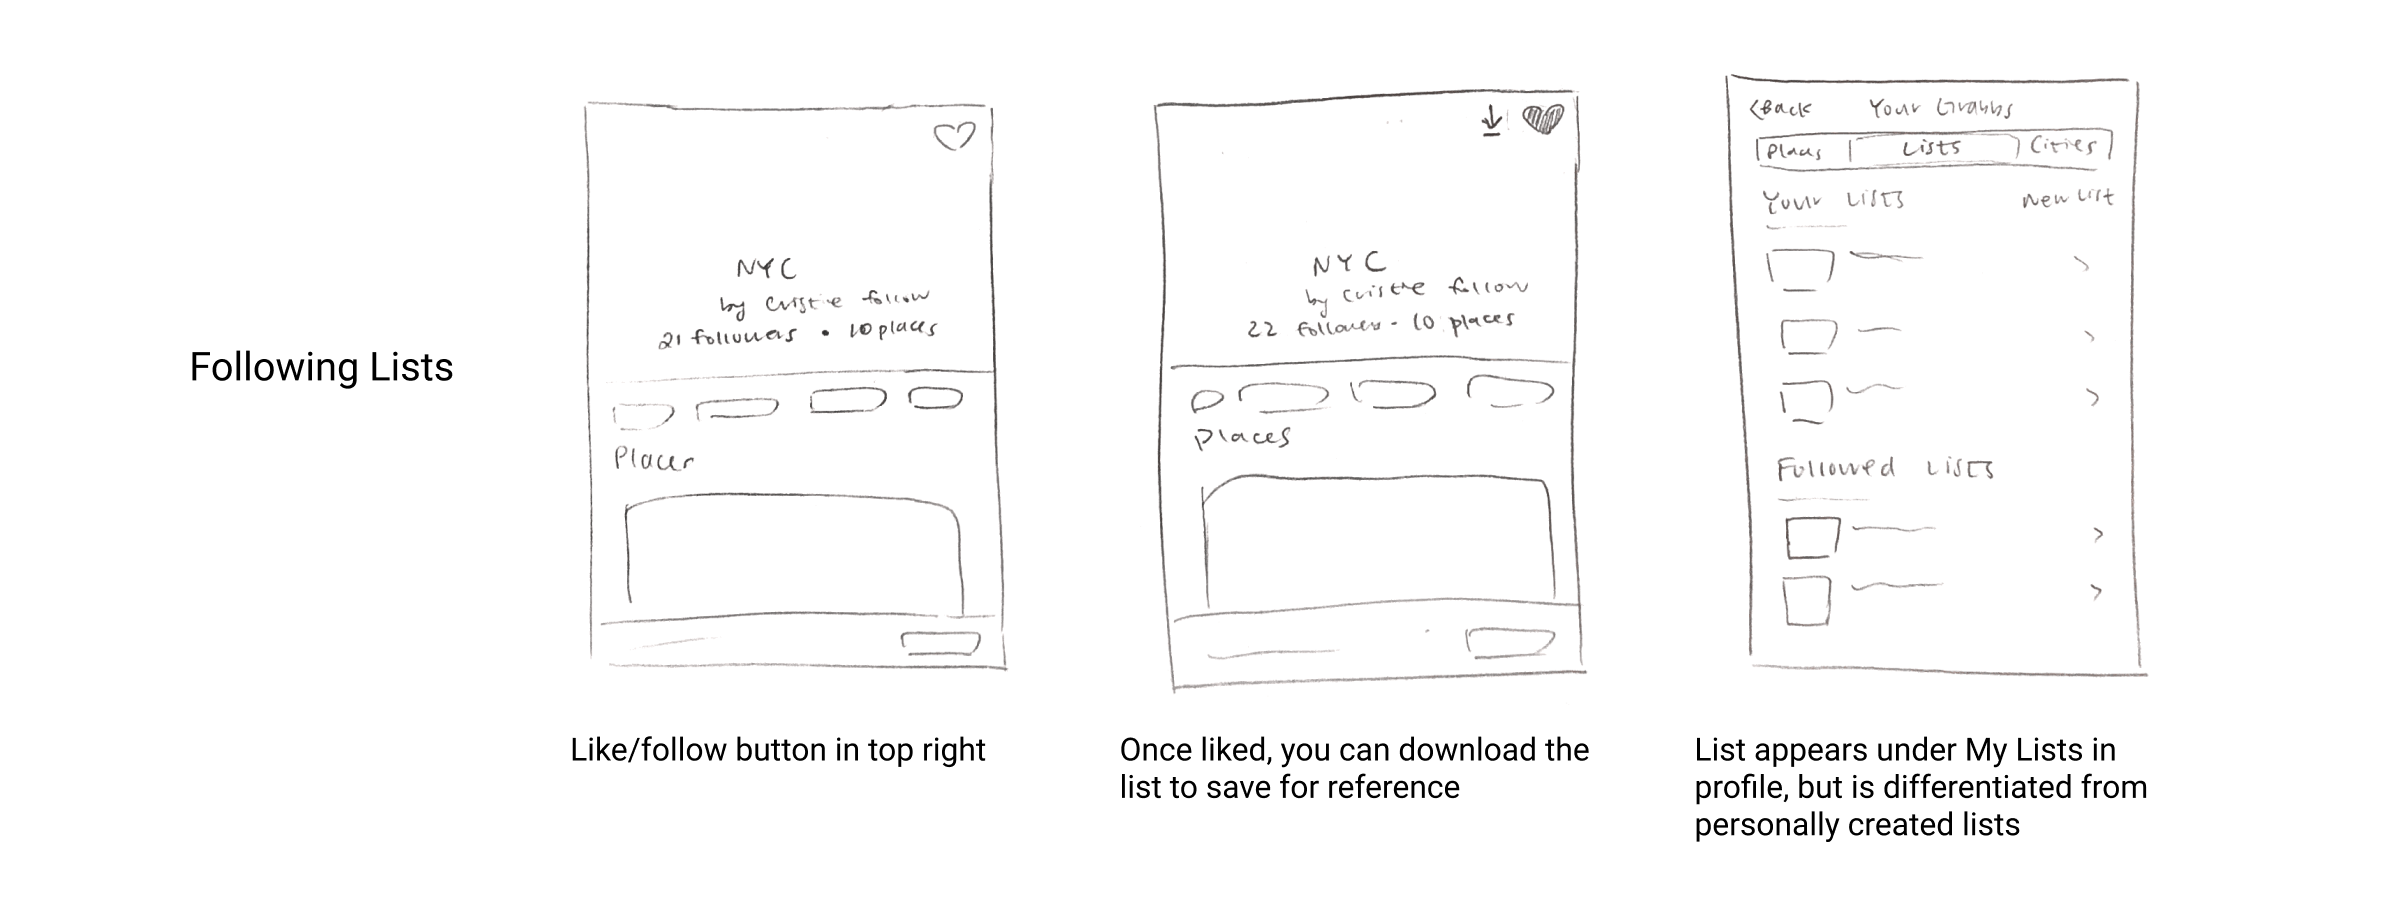 Following Lists
NYC
by Cristie follow
21 followers • 10 places
Places
Like/follow button in top right
NYC
by Cristie follow
22 followers - 10 places
Places
Once liked, you can download the
list to save for reference
<Back Your Grabbs
Places Lists Cities
Your Lists New List
Followed Lists
List appears under My Lists in
profile, but is differentiated from
personally created lists